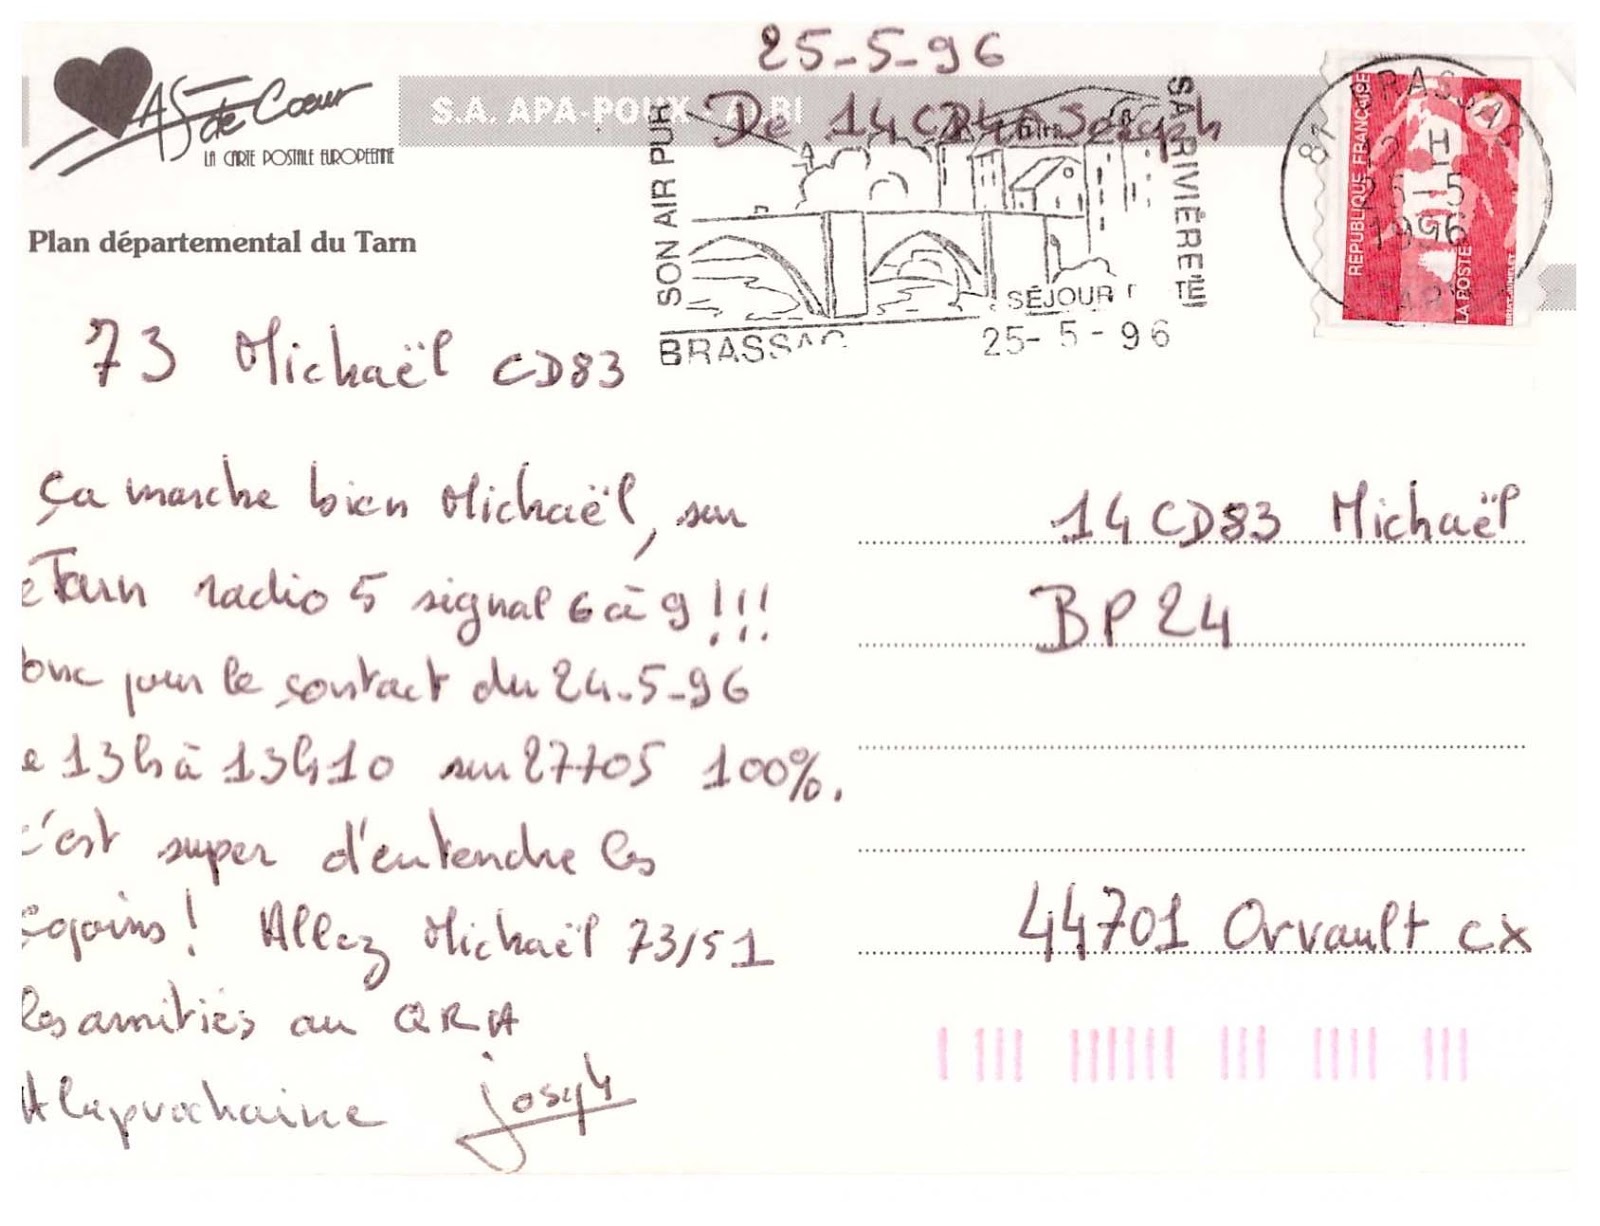 25-5-96
AS de Cœur
LA CARTE POSTALE EUROPEENNE
S.A. APA-POUX - ALBI
De 14CD Joseph
SON AIR PUR
SA RIVIÈRE
SÉJOUR
BRASSAC
25-5-96
81 BRASSAC
H
25-5
1996
TARN
REPUBLIQUE FRANÇAISE
LA POSTE
Plan départemental du Tarn
73 Michaël CD83
Ça marche bien Michaël, sur
e Tarn radio 5 signal 6 à 9!!!
onc pour le contact du 24-5-96
e 13h à 13h10 sur 27705 100%.
c'est super d'entendre les
copains! Allez Michaël 73/51
les amitiés au QRA
A la prochaine Joseph
14CD83 Michaël
BP24
44701 Orvault cx